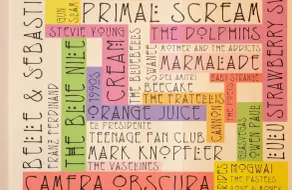 BELLE & SEBASTI
FRANZ FERDINAND
GUN
PRIMAL SCREAM
STEVIE YOUNG
THE BLUE NILE
1990S
CREAM
THE BLUEBELLS
SWANEE
THE DOLPHINS
MOTHER AND THE ADDICTS
MARMALADE
DEL AMITRI
BABY STRANGE
BEECAKE
THE FRATELLIS
CANNON
THE POETS
ORANGE JUICE
EL PRESIDENTE
TEENAGE FAN CLUB
MARK KNOPFLER
THE VASELINES
CAMERA OBSCURA
GLASVEGAS
OWEN PAUL
LULU
STRAWBERRY SW
MOGWAI
THE PASTELS
LOVE & MONEY